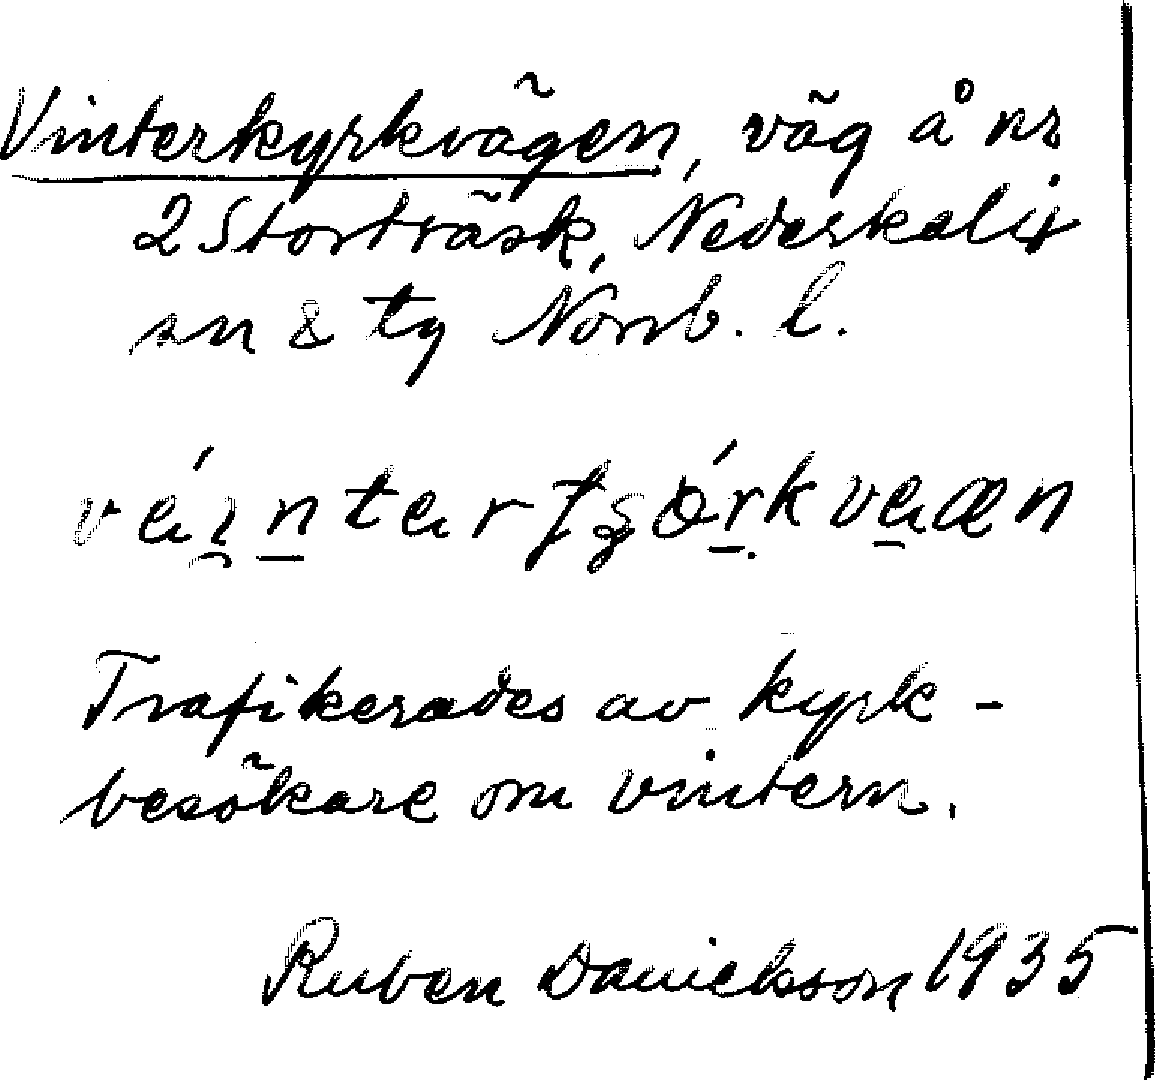 Vinterkyrkvägen, väg å nr
2 Storträsk, Nederkalix
sn & tg Norrb. l.
Trafikerades av kyrk-
besökare om vintern.
Ruben Danielsson 1935